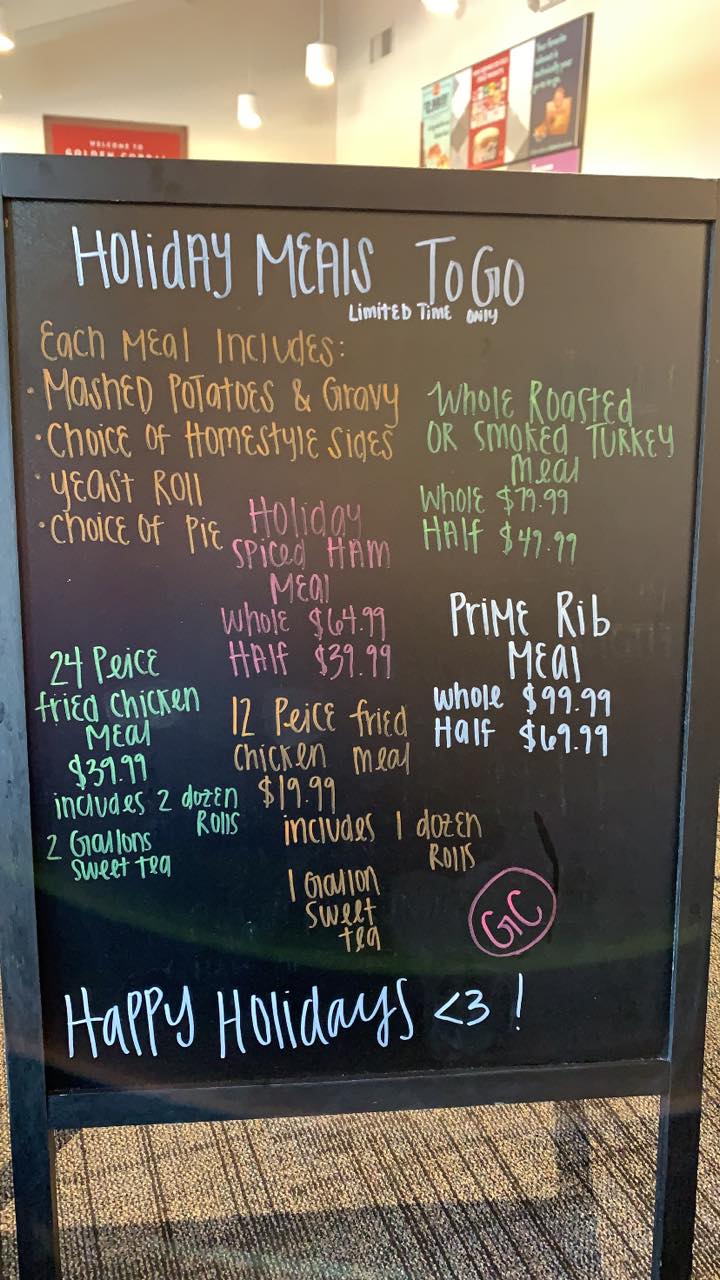 WELCOME TO
GOLDEN CORRAL
HOLIDAY MEALS TO GO
LIMITED TIME ONLY
Each Meal Includes:
· MASHED POTATOES & Gravy
· CHOICE OF HOMESTYLE SIDES
· YEAST ROLL
· CHOICE OF PIE
WHOLE ROASTED
OR SMOKED TURKEY
MEAL
WHOLE $79.99
HALF $49.99
Holiday
SPICED HAM
MEAL
WHOLE $64.99
HALF $39.99
PRIME RIB
MEAL
WHOLE $99.99
HALF $69.99
24 Peice
fried chicken
MEAL
$39.99
includes 2 dozen
ROLLS
2 Gallons
sweet tea
12 Peice fried
chicken meal
$19.99
includes 1 dozen
ROLLS
1 Gallon
sweet
tea
GC
HAPPY HOLIDAYS <3 !